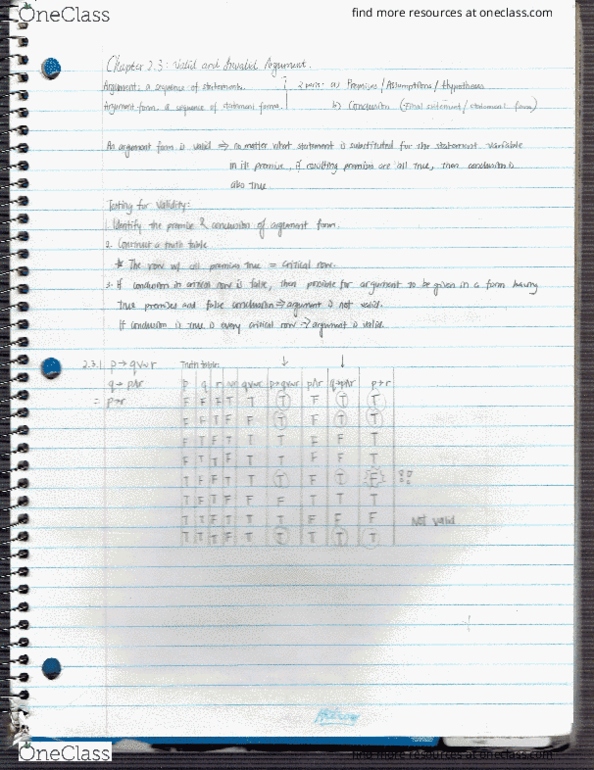 OneClass
find more resources at oneclass.com
Chapter 2.3: Valid and Invalid Argument.
Argument: a sequence of statements. 2 parts: a) Premises/Assumptions/Hypotheses
Argument form: a sequence of statement forms. b) Conclusion (final statement/statement form)
An argument form is valid ⇒ no matter what statement is substituted for the statement variable
in its premise, if resulting premises are all true, then conclusion is
also true
Testing for Validity:
1. Identify the premise & conclusion of argument form.
2. Construct a truth table
* The row w/ all premises true = critical row.
3. If conclusion in critical row is false, then possible for argument to be given in a form having
true premises and false conclusion ⇒ argument is not valid.
If conclusion is true is every critical row → argument is valid.
2.3.1 p → q ∨ ~r Truth table: ↓ ↓
q → p∧r p q r ~r q∨~r p→q∨~r p∧r q→p∧r p→r
= p→r F F F T T T F T T
F F T F F T F T T
F T F T T T F F T
F T T F T T F F T
T F F T T T F T F
T F T F F F T T T
T T F T T T F F F Not valid
T T T F T T T T T
Hilroy
OneClass
find more resources at oneclass.com